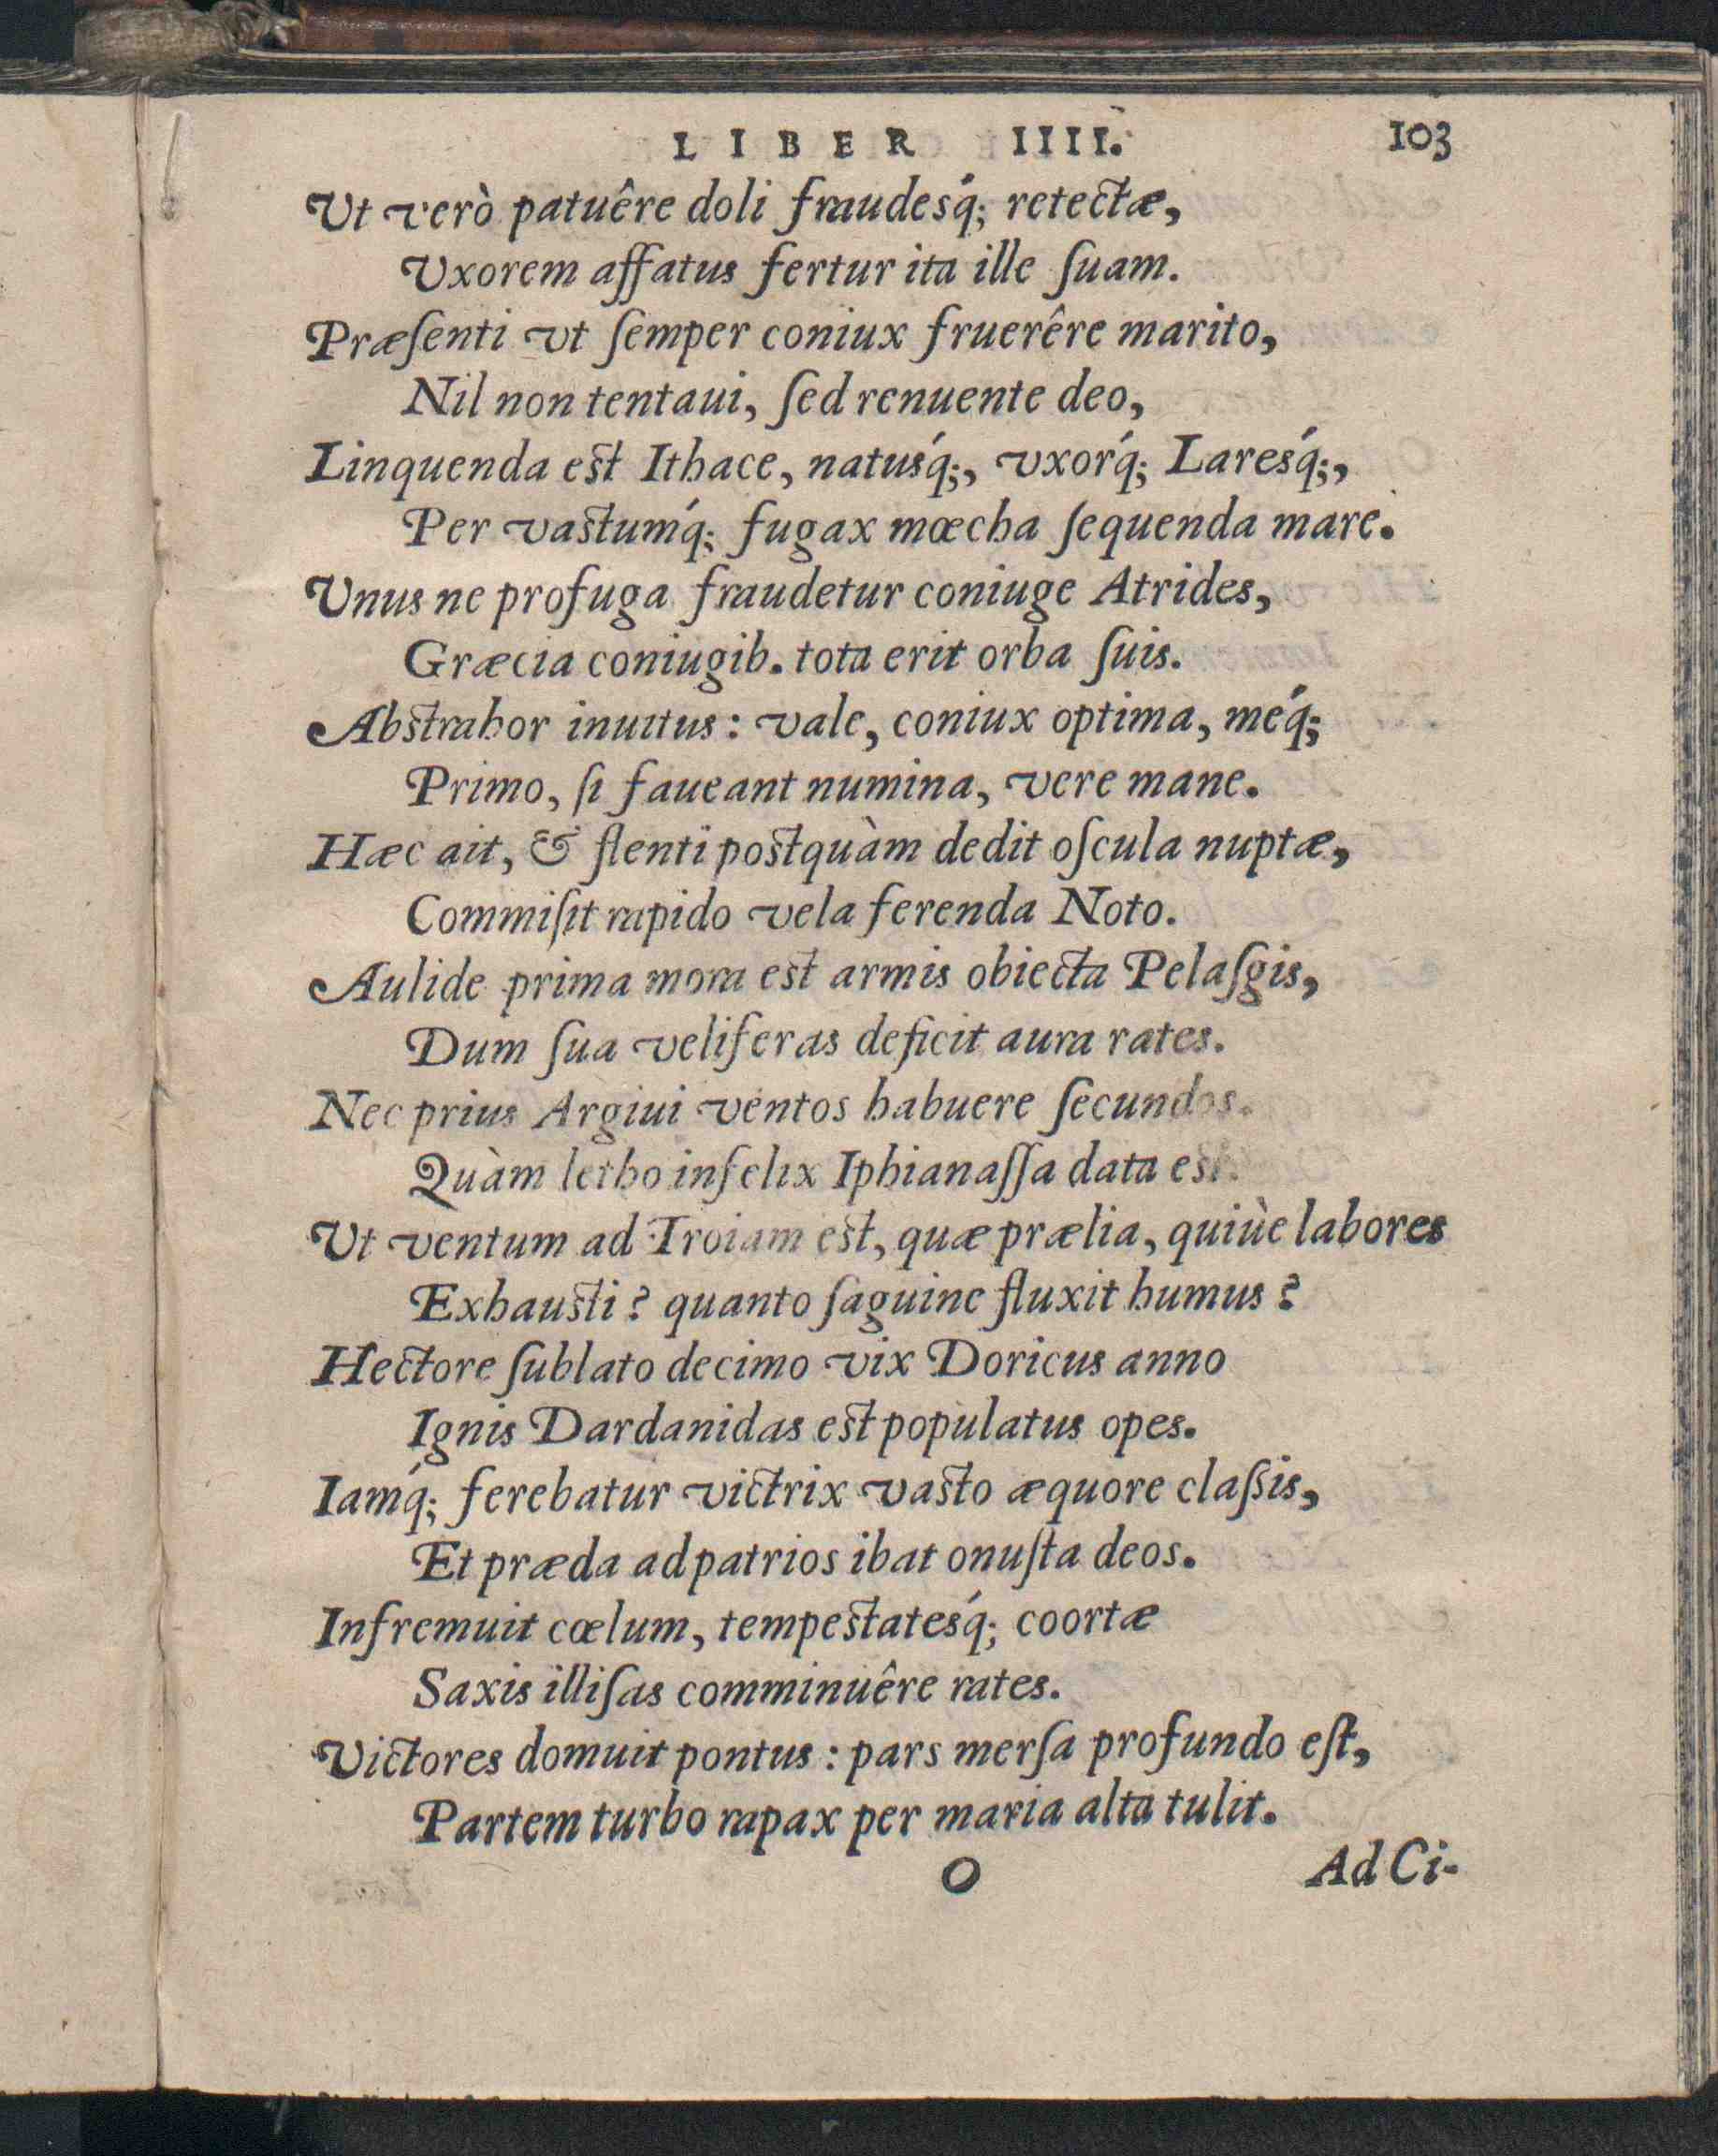 LIBER IIII. 103
Vt verò patuêre doli fraudesq́; retectæ,
Vxorem affatus fertur ita ille ſuam.
Præſenti vt ſemper coniux fruerêre marito,
Nil non tentaui, ſed renuente deo,
Linquenda est Ithace, natusq́;, vxorq́; Laresq́;,
Per vastumq́; fugax mœcha ſequenda mare.
Vnus ne profuga fraudetur coniuge Atrides,
Græcia coniugib. tota erit orba ſuis.
Abstrahor inuitus: vale, coniux optima, méq́;
Primo, ſi faueant numina, vere mane.
Hæc ait, & flenti postquàm dedit oſcula nuptæ,
Commiſit rapido vela ferenda Noto.
Aulide prima mora est armis obiecta Pelaſgis,
Dum ſua veliferas deficit aura rates.
Nec prius Argiui ventos habuere ſecundos.
Quàm letho infelix Iphianaſſa data est.
Vt ventum ad Troiam est, quæ prælia, quiùe labores
Exhausti? quanto ſaguine fluxit humus?
Hectore ſublato decimo vix Doricus anno
Ignis Dardanidas est populatus opes.
Iamq́; ferebatur victrix vasto æquore claßis,
Et præda ad patrios ibat onuſta deos.
Infremuit cœlum, tempestatesq́; coortæ
Saxis illiſas comminuêre rates.
Victores domuit pontus: pars merſa profundo eſt,
Partem turbo rapax per maria alta tulit.
O Ad Ci-